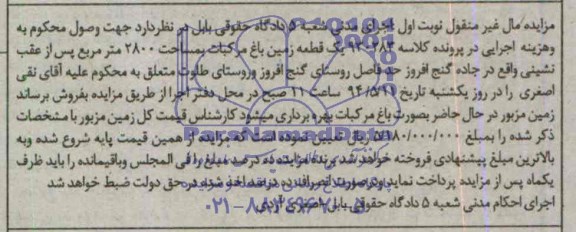 مزایده مال غیر منقول نوبت اول اجرای مدنی شعبه ۵ دادگاه حقوقی بابل در نظر دارد جهت وصول محکوم به
وهزینه اجرایی در پرونده کلاسه یک قطعه زمین باغ مرکبات بمساحت ۲۸۰۰ متر مربع پس از عقب
نشینی واقع در جاده گنج افروز حد فاصل روستای گنج افروز وروستای طلوت متعلق به محکوم علیه آقای نقی
اصغری را در روز یکشنبه تاریخ ساعت ۱۱ صبح در محل دفتر اجرا از طریق مزایده بفروش برساند
زمین مزبور در حال حاضر بصورت باغ مرکبات بهره برداری میشود کارشناس قیمت کل زمین مزبور با مشخصات
ذکر شده را بمبلغ تعیین نموده است که مزایده از همین قیمت پایه شروع شده وبه
بالاترین مبلغ پیشنهادی فروخته خواهد شد برنده مزایده ده درصد مبلغ را فی المجلس وباقیمانده را باید ظرف
یکماه پس از مزایده پرداخت نماید ودرصورت انصراف ده درصد اخذ شده در حق دولت ضبط خواهد شد
اجرای احکام مدنی شعبه ۵ دادگاه حقوقی بابل-اصغری
ParsNamadData